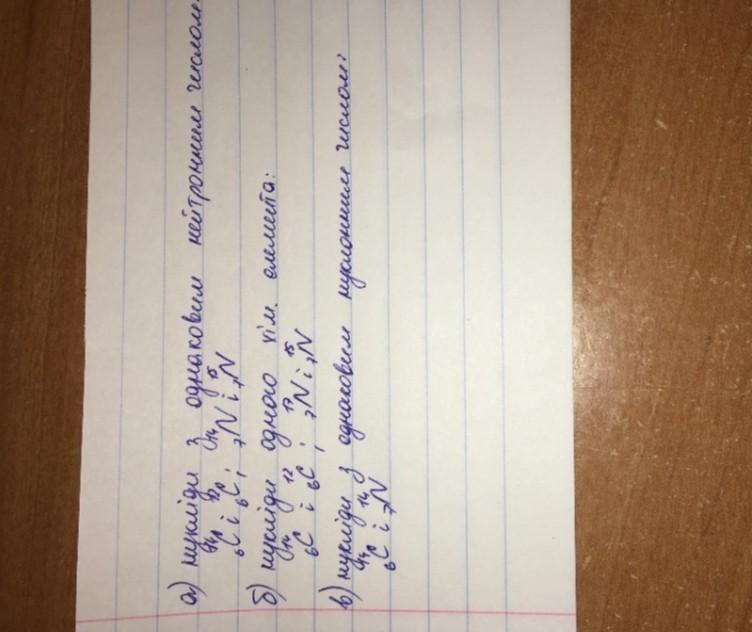 а) нукліди з однаковим нейтронним числом:
¹⁴₆C і ¹²₆C; ¹⁴₇N і ¹⁵₇N
б) нукліди одного хім. елемента:
¹⁴₆C і ¹²₆C; ₇N і ¹⁵₇N
в) нукліди з однаковим нуклонним числом:
¹⁴₆C і ¹⁴₇N